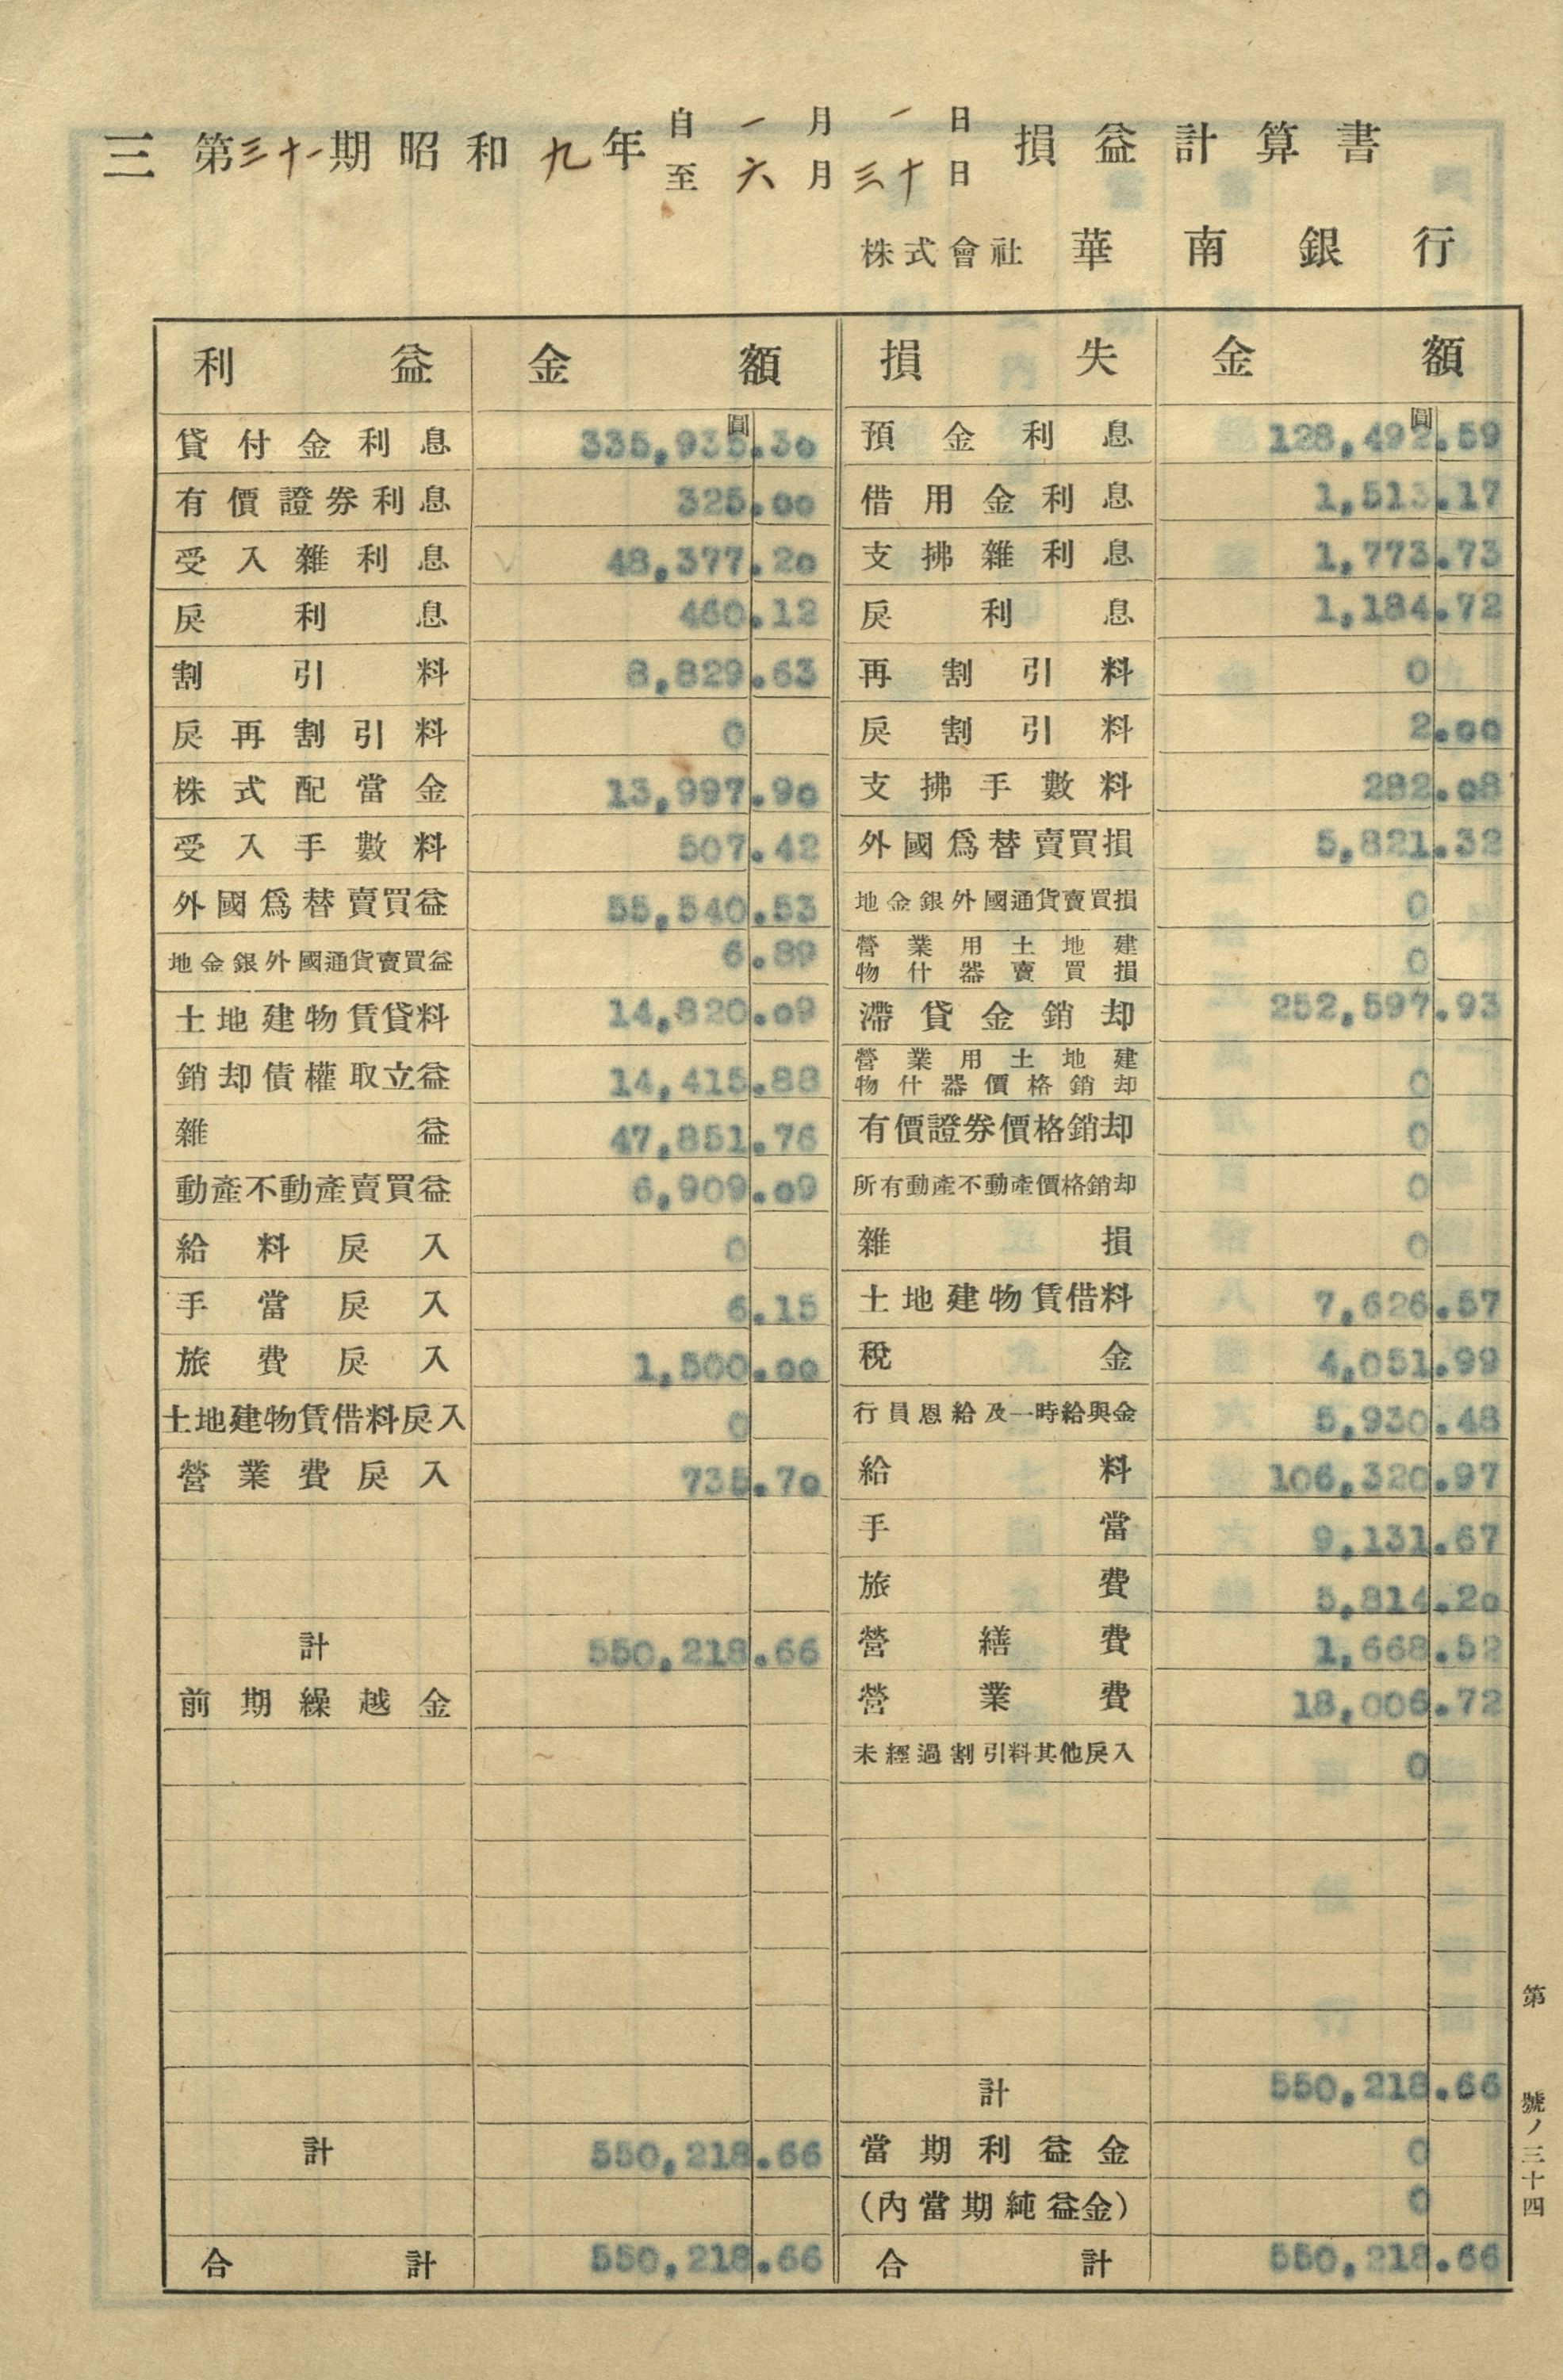 三 第三十一期昭和九年 自一月一日 至六月三十日 損益計算書
株式會社 華南銀行
利益 金額 損失 金額
圓 圓
貸付金利息 335,935.30 預金利息 128,492.59
有價證券利息 325.00 借用金利息 1,513.17
受入雜利息 48,377.20 支拂雜利息 1,773.73
戾利息 460.12 戾利息 1,184.72
割引料 8,829.63 再割引料 0
戾再割引料 0 戾割引料 2.00
株式配當金 13,997.90 支拂手數料 282.08
受入手數料 507.42 外國爲替賣買損 5,821.32
外國爲替賣買益 55,540.53 地金銀外國通貨賣買損 0
地金銀外國通貨賣買益 6.89 營業用土地建物什器賣買損 0
土地建物賃貸料 14,820.09 滯貸金銷却 252,597.93
銷却債權取立益 14,415.88 營業用土地建物什器價格銷却 0
雜益 47,851.76 有價證券價格銷却 0
動產不動產賣買益 6,909.09 所有動產不動產價格銷却 0
給料戾入 0 雜損 0
手當戾入 6.15 土地建物賃借料 7,626.57
旅費戾入 1,500.00 稅金 4,051.99
土地建物賃借料戾入 0 行員恩給及一時給與金 5,930.48
營業費戾入 735.70 給料 106,320.97
手當 9,131.67
旅費 5,814.20
計 550,218.66 營繕費 1,668.52
前期繰越金 營業費 18,006.72
未經過割引料其他戾入 0
計 550,218.66
計 550,218.66 當期利益金 0
(內當期純益金) 0
合計 550,218.66 合計 550,218.66
第 號ノ三十四